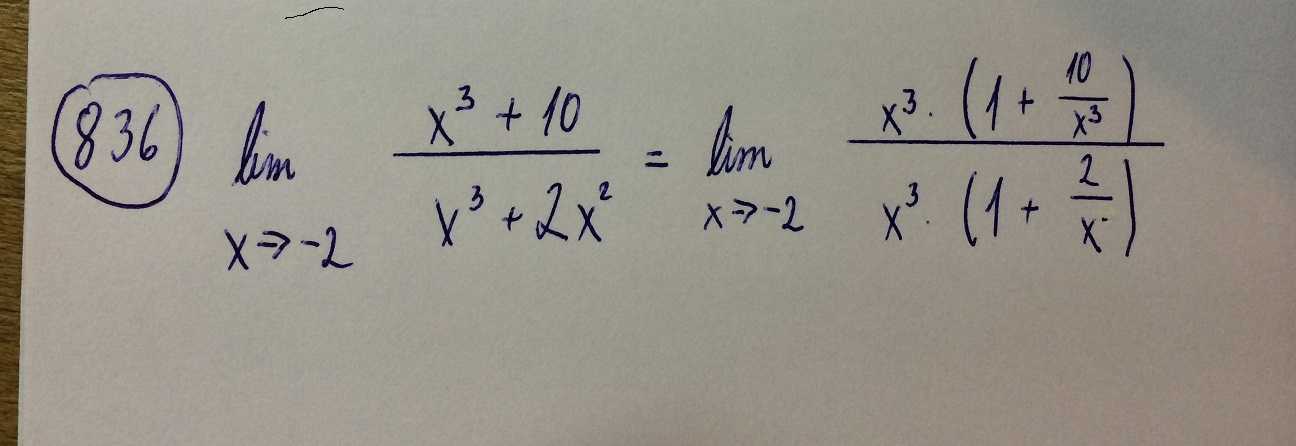 836 lim x→-2 (x³ + 10)/(x³ + 2x²) = lim x→-2 (x³ · (1 + 10/x³))/(x³ · (1 + 2/x))